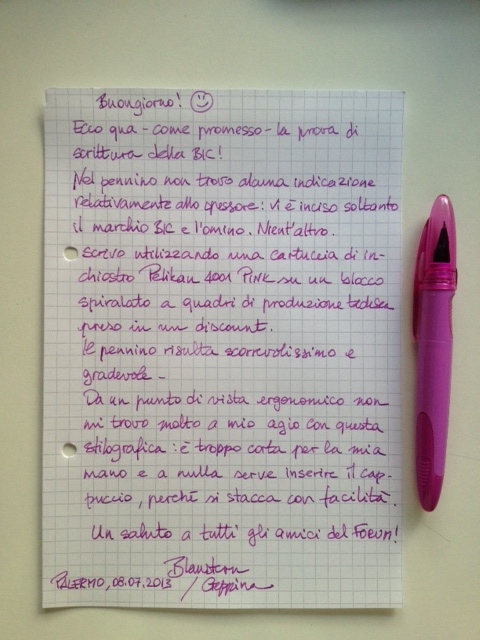 Buongiorno! ☺
Ecco qua - come promesso - la prova di
scrittura della BIC!
Nel pennino non trovo alcuna indicazione
relativamente allo spessore: vi è inciso soltanto
il marchio BIC e l'omino. Nient'altro.
Scrivo utilizzando una cartuccia di in-
chiostro Pelikan 4001 PINK su un blocco
spiralato a quadri di produzione tedesca
preso in un discount.
Il pennino risulta scorrevolissimo e
gradevole -
Da un punto di vista ergonomico non
mi trovo molto a mio agio con questa
stilografica: è troppo corta per la mia
mano e a nulla serve inserire il cap-
puccio, perché si stacca con facilità.
Un saluto a tutti gli amici del Forum!
Blaustern
PALERMO, 08.07.2013 / Geppina